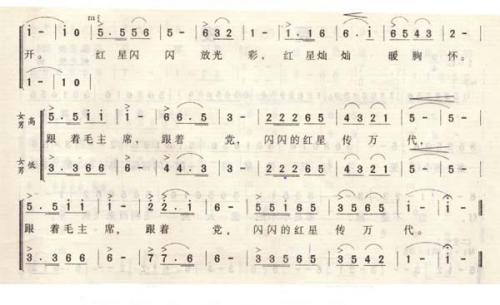 mf
i - i0 | 5.556 5- | 632 1- | 1.16 6.i | 6543 2-
开。 红星闪闪 放光彩，红星灿灿 暖胸怀。
i - 10
女男 高 5.5ii i- | 66.5 3- | 22265 | 4321 | 5- | 5-
跟着毛主席，跟着 党，闪闪的红星 传万代，
女男 低 3.366 6- | 3- | 22265 | 4321 | 5- | 5-
5.5ii i- | 22.i 6- | 55165 | 3565 | i- | i-
跟着毛主席，跟着 党，闪闪的红星 传万代。
3.366 6- | 77.6 3- | 33565 | 3542 | i- | i-